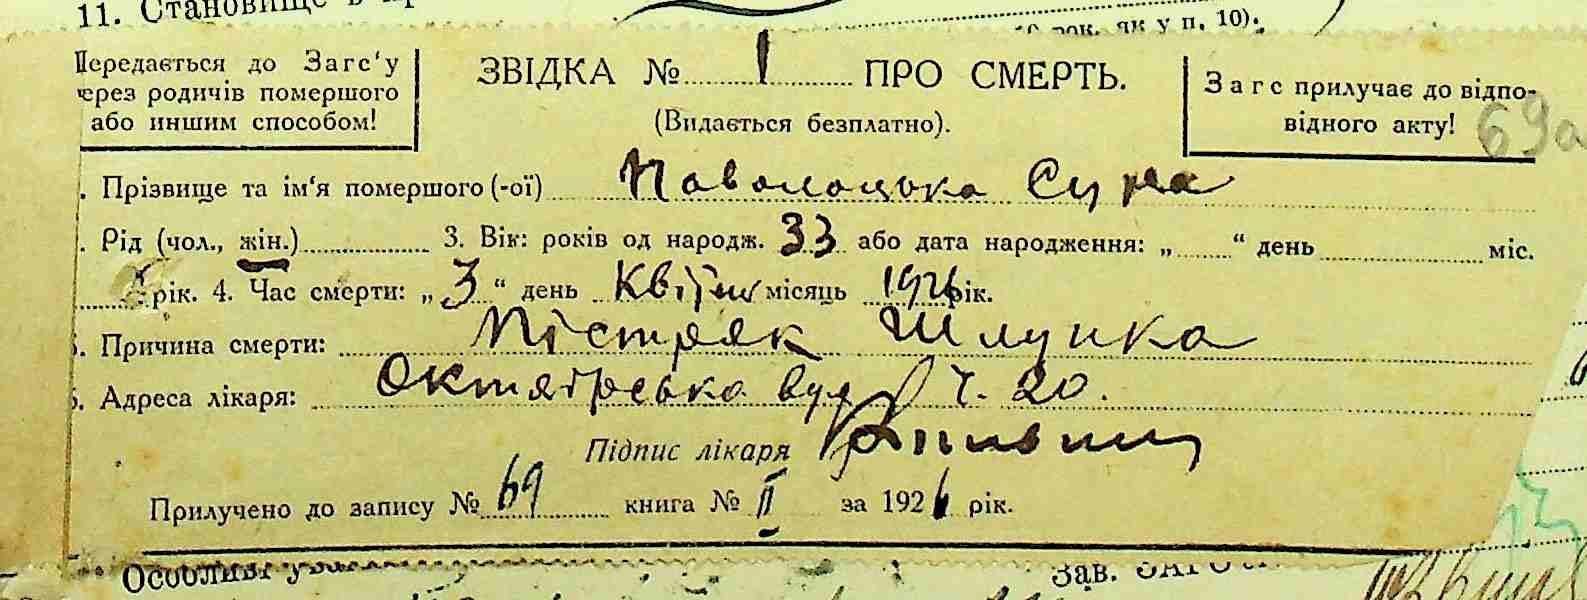 11. Становище в
рок, як у п. 10).
Передається до Загс'у
через родичів помершого
або иншим способом!
ЗВІДКА № 1 ПРО СМЕРТЬ.
(Видається безплатно).
Загс прилучає до відпо-
відного акту! 69а
. Прізвище та ім'я помершого (-ої) Паволоцька Сура
. Рід (чол., жін.) 3. Вік: років од народж. 33 або дата народження: „ “ день міс.
рік. 4. Час смерти: „3“ день Квітня місяць 1926 рік.
5. Причина смерти: Пістряк Шлунка
6. Адреса лікаря: Октябрська вул ч. 20.
Підпис лікаря
Прилучено до запису № 69 книга № II за 1926 рік.
Особливі
Зав. ЗАГС